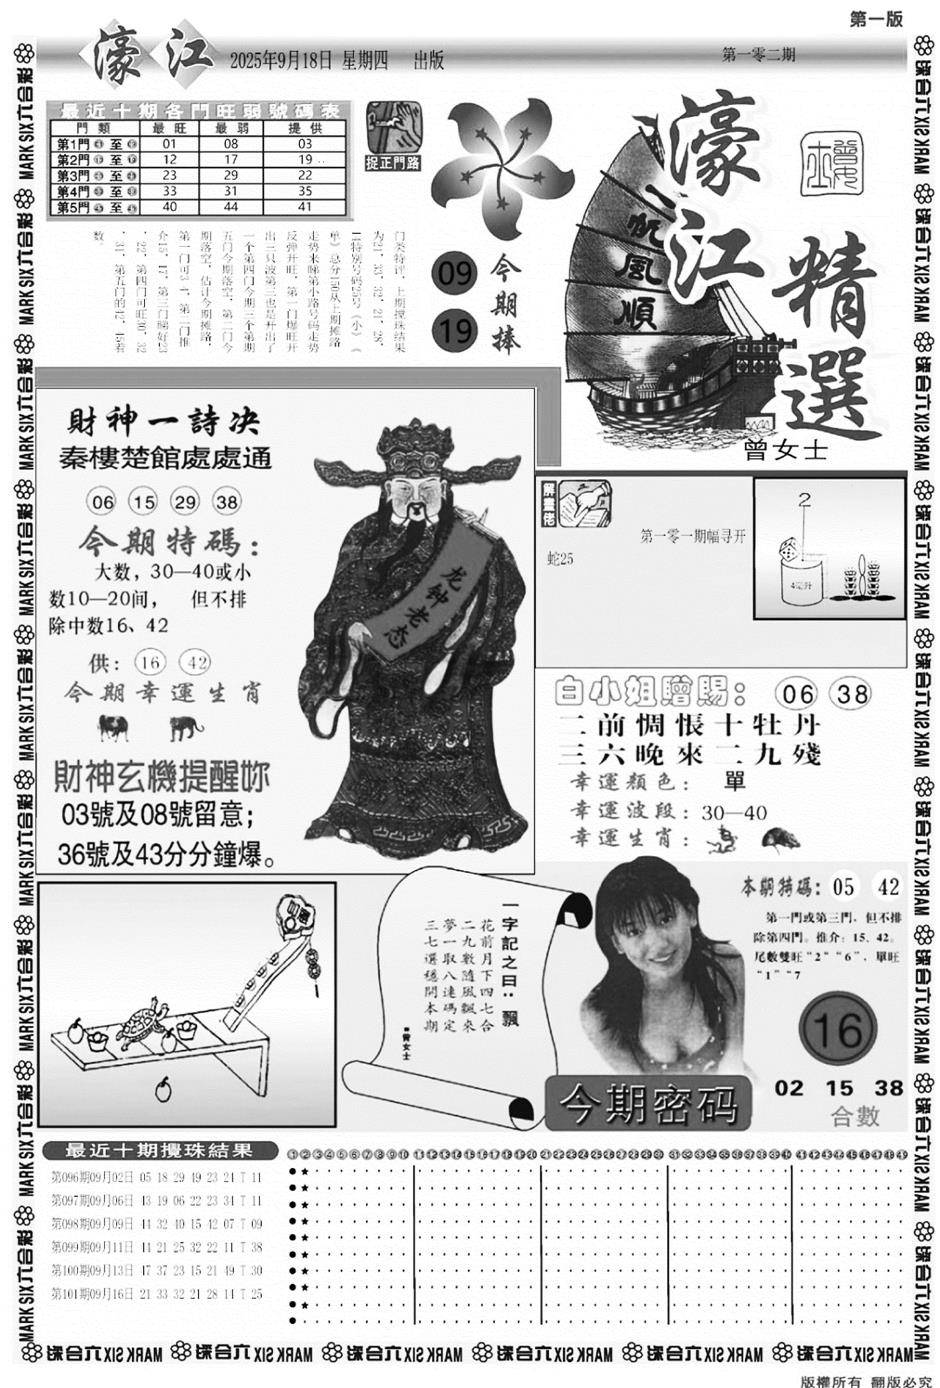 第一版
濠江
2025年9月18日 星期四 出版
第一零二期
最近十期各門旺弱號碼表
門類 最旺 最弱 提供
第1門 至 01 08 03
第2門 至 12 17 19
第3門 至 23 29 22
第4門 至 33 31 35
第5門 至 40 44 41
捉正門路
门类特评，上期搅珠结果
为21、33、32、21、28、
反弹开旺，第一门爆旺开
一个第四门今期三个第期
五门今期落空，第二门今
期落空，估计今期摊路，
09
19
今期捧
一帆風順
濠江
精選
曾女士
財神一詩决
秦樓楚館處處通
06 15 29 38
今期特碼：
大数，30—40或小
数10—20间， 但不排
除中数16、42
供： 16 42
今期幸運生肖
財神玄機提醒妳
03號及08號留意；
36號及43分分鐘爆。
龙钟老态
解畫佬
第一零一期幅寻开
蛇25
2
4毫升
白小姐贈賜： 06 38
二前惆悵十牡丹
三六晚來二九殘
幸運顏色： 單
幸運波段：30—40
幸運生肖：
一字記之曰：飄
花前月下四七合
二九數隨風飄來
夢一取八連碼定
三七選穩開本期
曾女士
本期特碼：05 42
第一門或第三門，但不排
除第四門。推介：15．42。
尾數雙旺“2”“6”，單旺
“1”“7
16
02 15 38
合數
今期密码
最近十期攪珠結果
①②③④⑤⑥⑦⑧⑨⑩⑪⑫⑬⑭⑮⑯⑰⑱⑲⑳㉑㉒㉓㉔㉕㉖㉗㉘㉙㉚㉛㉜㉝㉞㉟㊱㊲㊳㊴㊵㊶㊷㊸㊹㊺㊻㊼㊽㊾
第096期09月02日 05 18 29 49 23 24 T 11
第097期09月06日 43 19 06 22 23 34 T 11
第098期09月09日 44 32 40 15 42 07 T 09
第099期09月11日 44 21 25 32 22 11 T 38
第100期09月13日 47 37 23 15 21 49 T 30
第101期09月16日 21 33 32 21 28 14 T 25
MARK SIX六合彩
版權所有 翻版必究